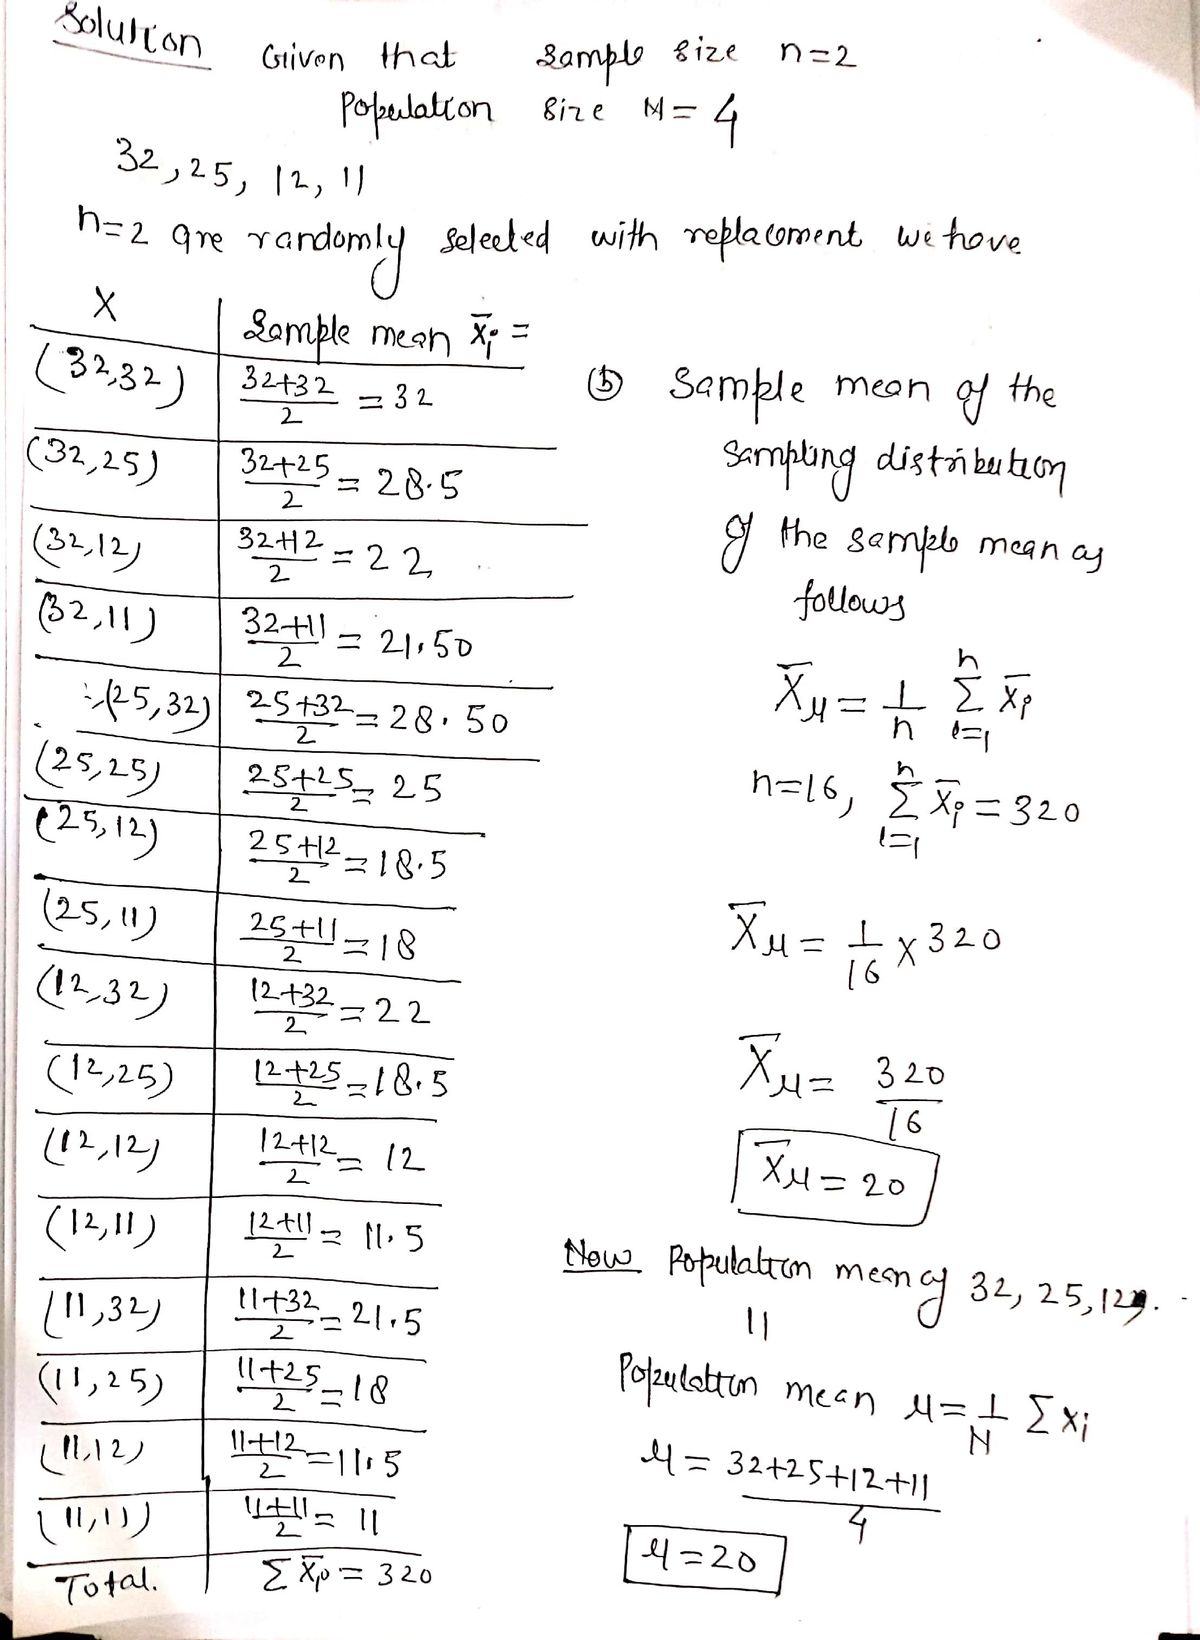 Solution
Given that sample size n=2
Population size N= 4
32, 25, 12, 11
n=2 are randomly selected with replacement we have
X | Sample mean X̄i =
(32,32) | 32+32/2 = 32
(32,25) | 32+25/2 = 28.5
(32,12) | 32+12/2 = 22
(32,11) | 32+11/2 = 21.50
(25,32) | 25+32/2 = 28.50
(25,25) | 25+25/2 = 25
(25,12) | 25+12/2 = 18.5
(25,11) | 25+11/2 = 18
(12,32) | 12+32/2 = 22
(12,25) | 12+25/2 = 18.5
(12,12) | 12+12/2 = 12
(12,11) | 12+11/2 = 11.5
(11,32) | 11+32/2 = 21.5
(11,25) | 11+25/2 = 18
(11,12) | 11+12/2 = 11.5
(11,11) | 11+11/2 = 11
Total. | Σ X̄i = 320
(b) Sample mean of the
sampling distribution
of the sample mean as
follows
X̄μ = 1/n Σ_{i=1}^{n} X̄i
n=16, Σ_{i=1}^{n} X̄i = 320
X̄μ = 1/16 x 320
X̄μ = 320/16
X̄μ = 20
Now Population mean of 32, 25, 12,
11
Population mean μ = 1/N Σ xi
μ = 32+25+12+11/4
μ = 20